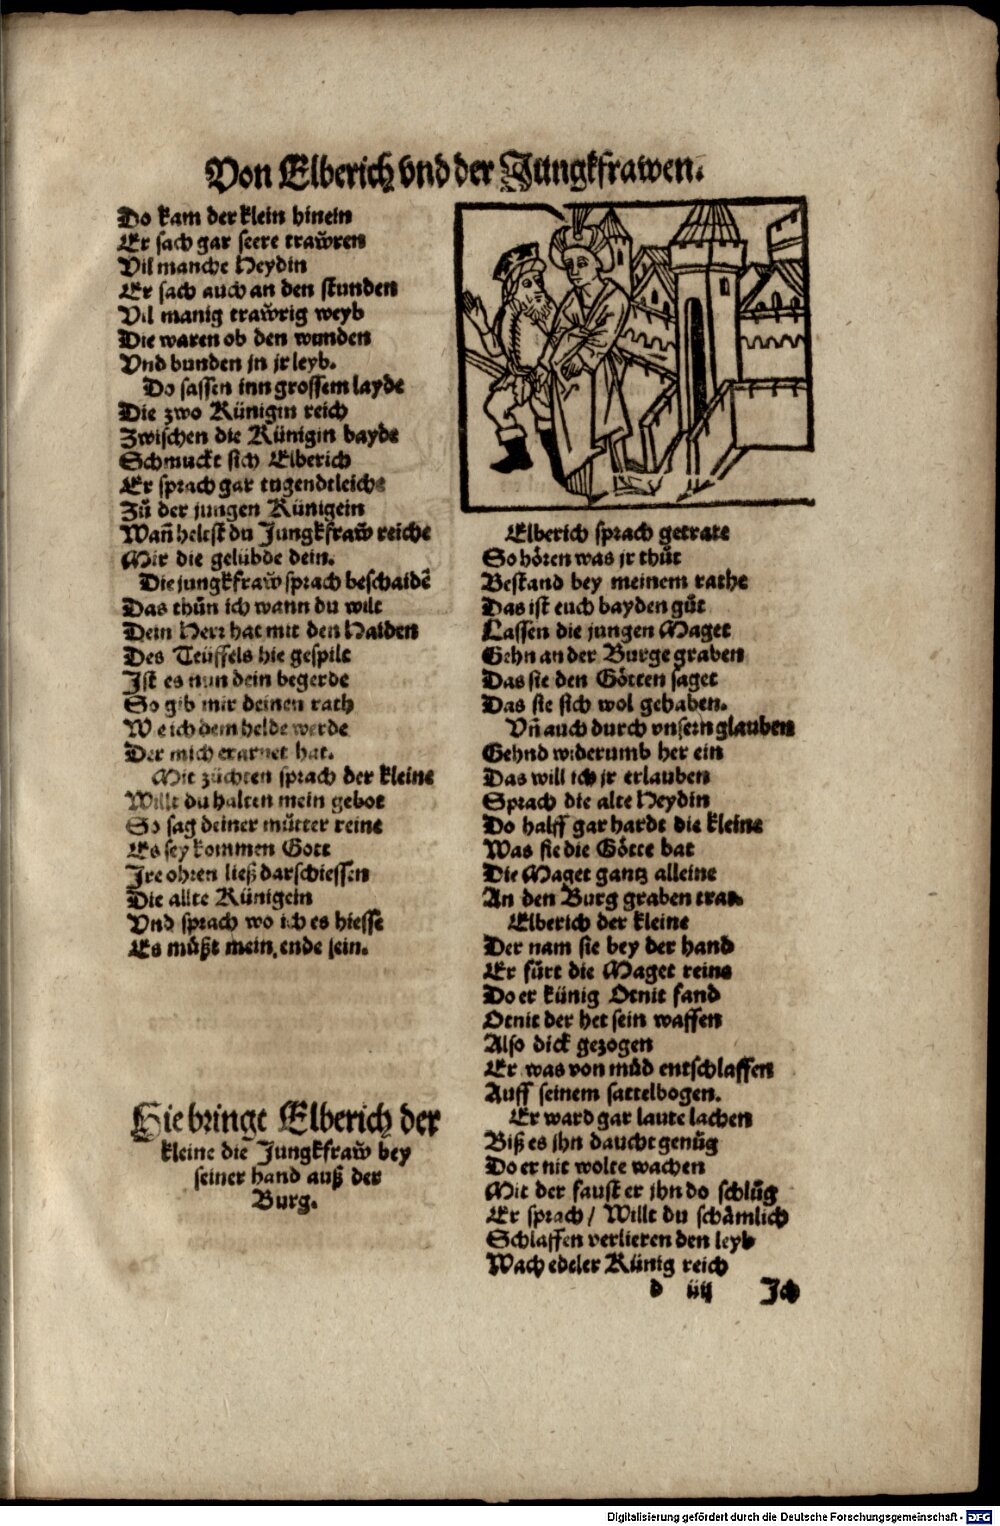 Von Elberich vnd der Jungkfrawen.
Do kam der klein hinein
Er sach gar seere trawͤren
Vil manche Heydin
Er sach auch an den stunden
Vil manig trawͤrig weyb
Die waren ob den wunden
Vnd bunden jn jr leyb.
Do sassen inn grossem layde
Die zwo Künigin reich
Zwischen die Künigin bayde
Schmuckt sich Elberich
Er sprach gar tugendtleiche
Zů der jungen Künigein
Wañ heltst du Jungkfraw̃ reiche
Mir die gelübde dein.
Die jungkfraw̃ sprach beschaidẽ
Das thůn ich wann du wilt
Dein Herr hat mit den Haiden
Des Teüffels hie gespilt
Ist es nun dein begerde
So gib mir deinen rath
We ich dem helde werde
Der mich erarnet hat.
Mit züchten sprach der kleine
Willt du halten mein gebot
So sag deiner můtter reine
Es sey kommen Gott
Jre ohren ließ darschiessen
Die allte Künigein
Vnd sprach wo ich es hiesse
Es můßt mein ende sein.
Hie bringt Elberich der
kleine die Jungkfraw̃ bey
seiner hand auß der
Burg.
Elberich sprach getrate
So hören was jr thůt
Bestand bey meinem rathe
Das ist euch bayden gůt
Lassen die jungen Maget
Gehn an der Burge graben
Das sie den Götten saget
Das sie sich wol gehaben.
Vñ auch durch vnsern glauben
Gehnd widerumb her ein
Das will ich jr erlauben
Sprach die alte Heydin
Do halff gar hardt die kleine
Was sie die Götte bat
Die Maget gantz alleine
An den Burg graben trat.
Elberich der kleine
Der nam sie bey der hand
Er fůrt die Maget reine
Do er künig Otnit fand
Otnit der het sein waffen
Also dick gezogen
Er was von můd entschlaffen
Auff seinem sattelbogen.
Er ward gar laute lachen
Biß es jhn daucht genůg
Do er nit wolte wachen
Mit der faust er jhn do schlůg
Er sprach / Willt du schämlich
Schlaffen verlieren den leyb
Wach edeler Künig reich
d iiij Ich
Digitalisierung gefördert durch die Deutsche Forschungsgemeinschaft - DFG